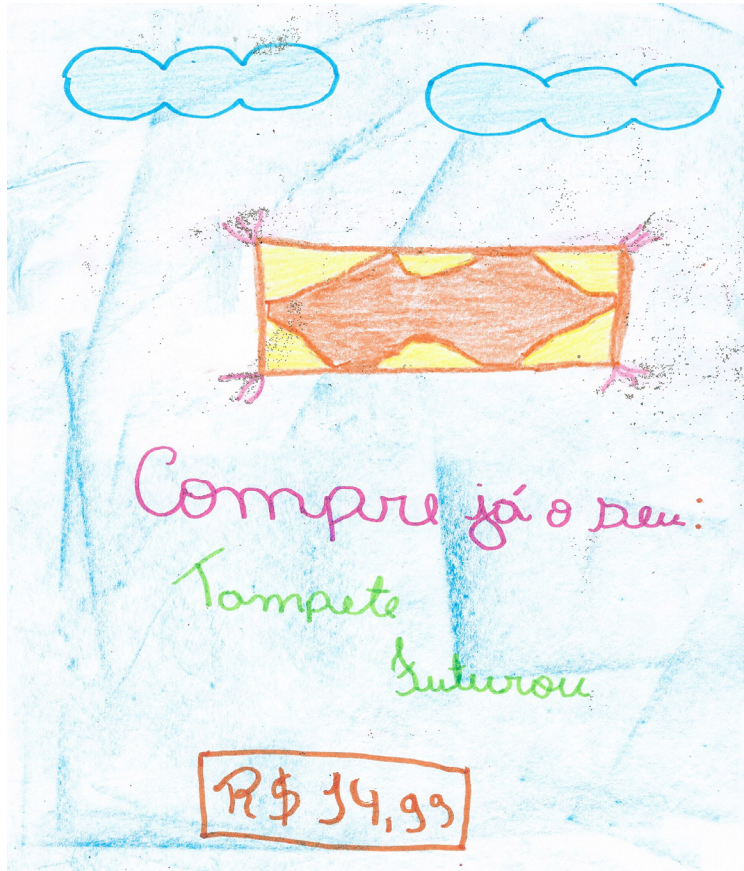 Compre já o seu:
Tampete
Futurou
R$ 14,99